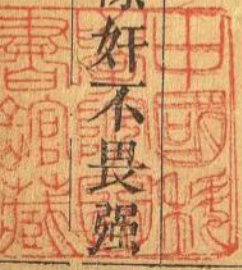 奸不畏强
中國科
書館藏